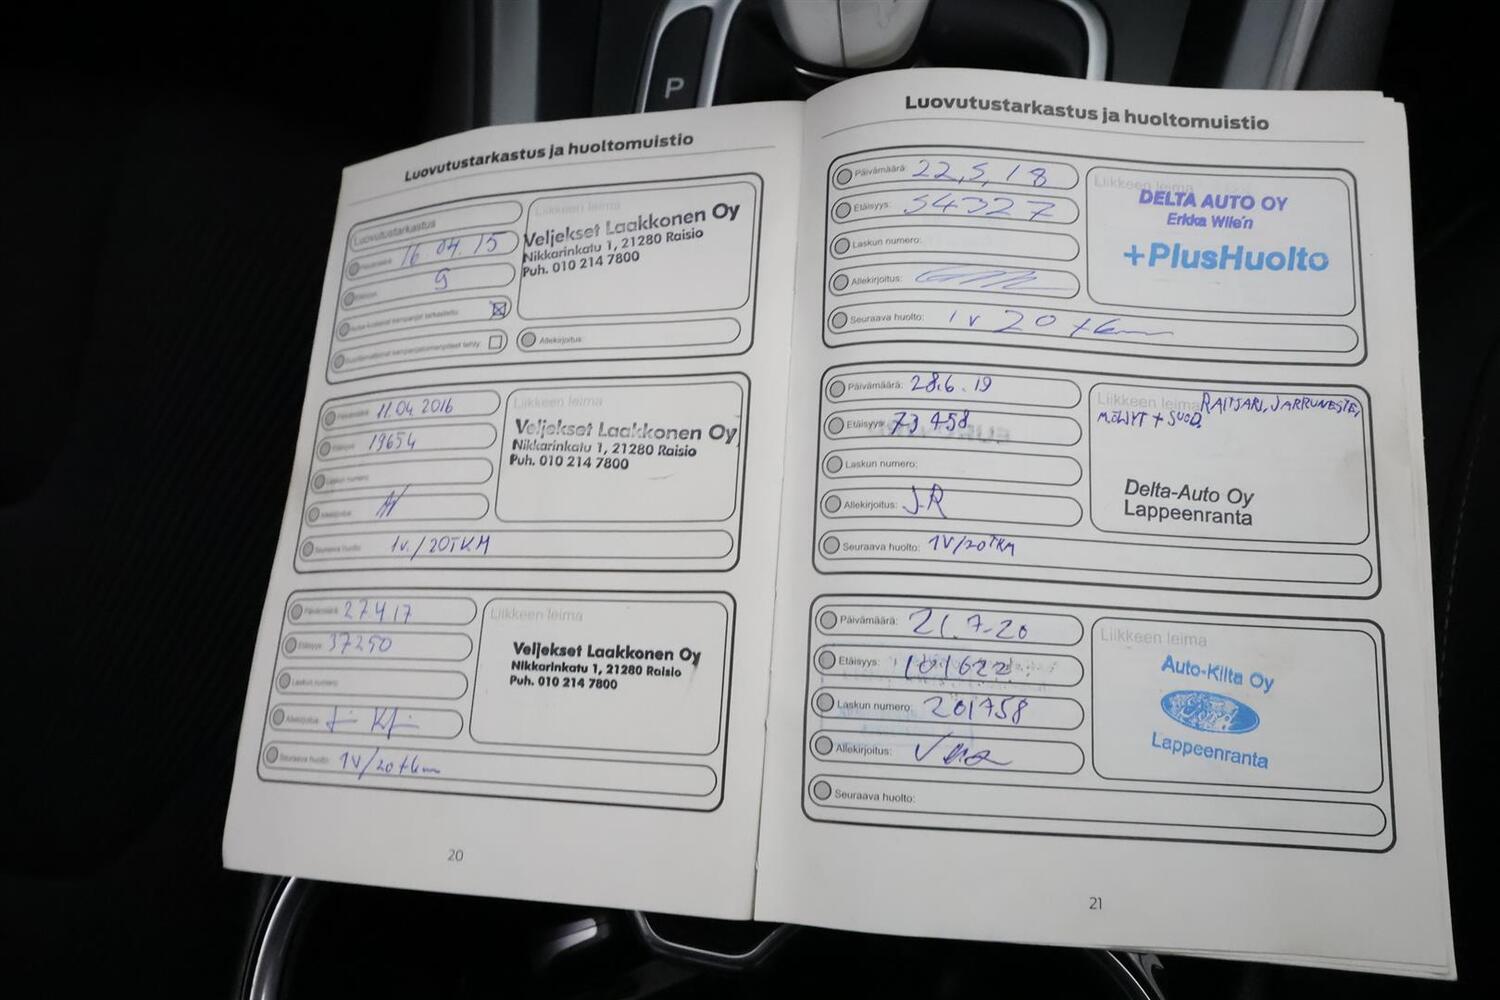 P
Luovutustarkastus ja huoltomuistio
Luovutustarkastus
Päivämäärä: 16.04.15
9
Liikkeen leima
Veljekset Laakkonen Oy
Nikkarinkatu 1, 21280 Raisio
Puh. 010 214 7800
Allekirjoitus:
Päivämäärä: 11.04.2016
Etäisyys: 19654
Laskun numero:
Allekirjoitus:
Seuraava huolto: 1v./20TKM
Liikkeen leima
Veljekset Laakkonen Oy
Nikkarinkatu 1, 21280 Raisio
Puh. 010 214 7800
Päivämäärä: 27.4.17
Etäisyys: 37250
Laskun numero:
Allekirjoitus:
Seuraava huolto: 1V/20tkm
Liikkeen leima
Veljekset Laakkonen Oy
Nikkarinkatu 1, 21280 Raisio
Puh. 010 214 7800
20
Luovutustarkastus ja huoltomuistio
Päivämäärä: 22.5.18
Etäisyys: 54327
Laskun numero:
Allekirjoitus:
Seuraava huolto: 1v 20 tkm
Liikkeen leima
DELTA AUTO OY
Erkka Wile'n
+PlusHuolto
Päivämäärä: 28.6.19
Etäisyys: 73458
Laskun numero:
Allekirjoitus: J.R
Seuraava huolto: 1V/20TKM
Liikkeen leima RAITISARI, JARRUNESTE,
MOLYT + SUOD.
Delta-Auto Oy
Lappeenranta
Päivämäärä: 21.7-20
Etäisyys: 101622
Laskun numero: 201758
Allekirjoitus:
Seuraava huolto:
Liikkeen leima
Auto-Kilta Oy
Ford
Lappeenranta
21